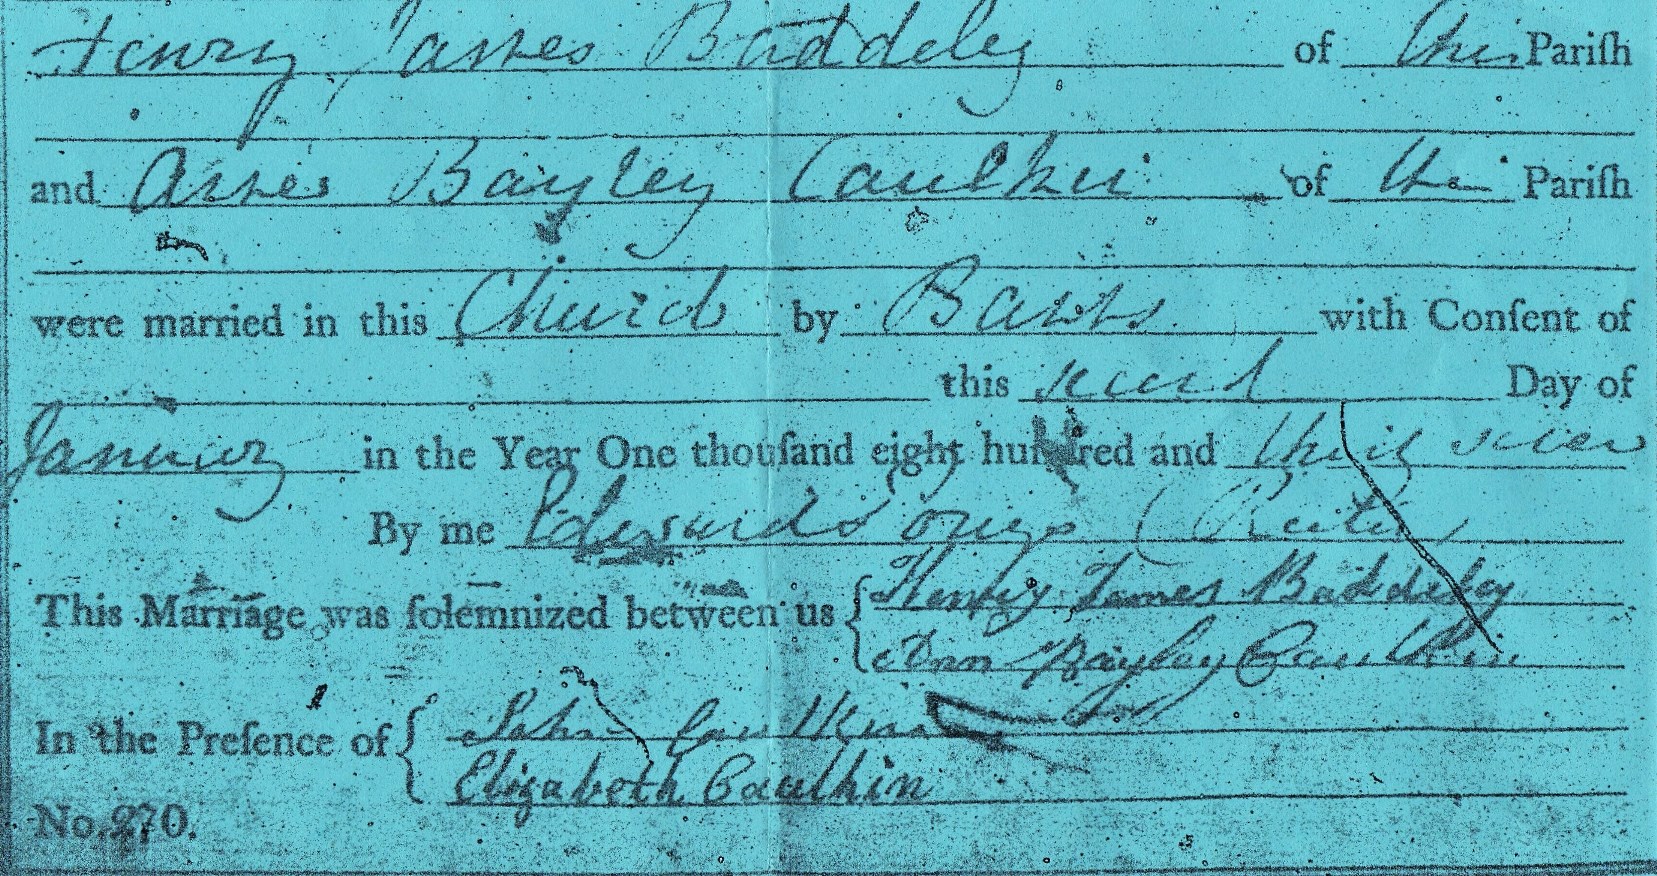 Henry James Baddeley of this Pariſh
and Anne Bayley Caulkin of this Pariſh
were married in this Church by Banns with Conſent of
this second Day of
January in the Year One thouſand eight hundred and thirty
By me Edward
This Marriage was ſolemnized between us { Henry James Baddeley
Ann Bayley Caulkin
In the Preſence of { John Caulkin
Elizabeth Caulkin
No. 270.